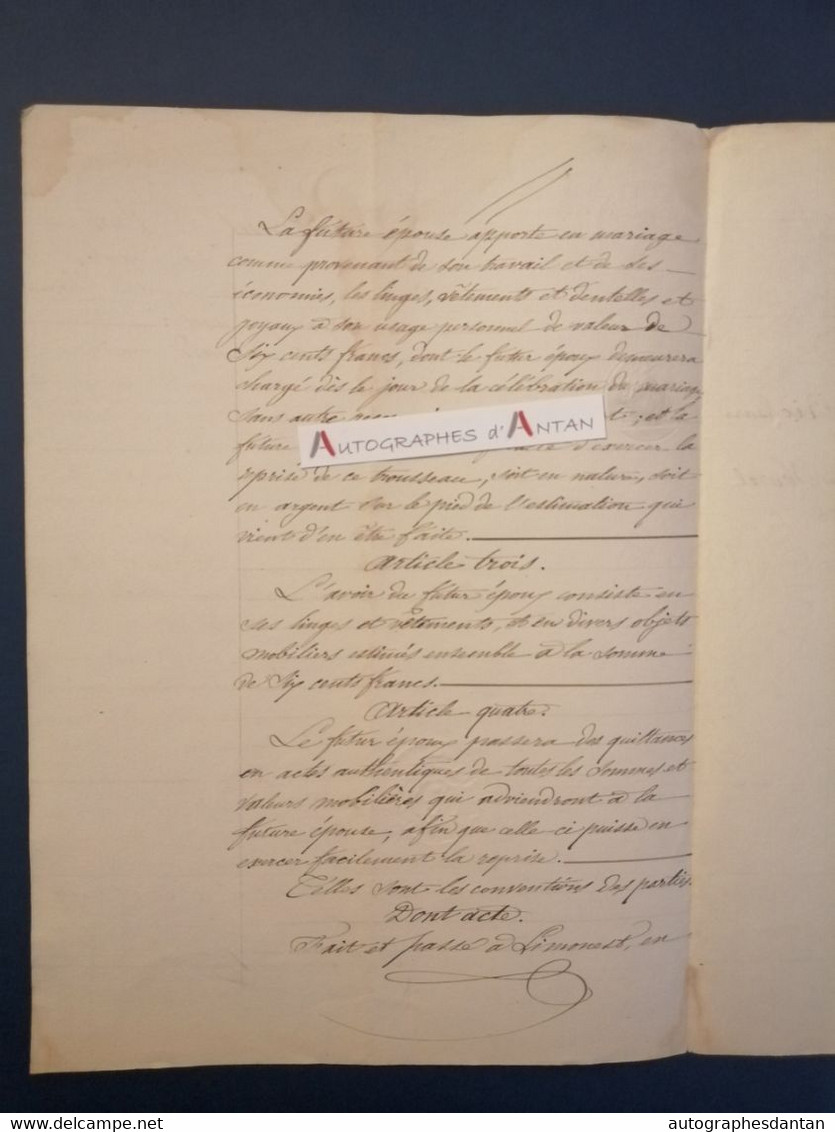 La future épouse apporte en mariage
comme provenant de son travail et de ses
économies, les linges, vêtements et dentelles et
joyaux à son usage personnel de valeur de
Six cents francs, dont le futur époux demeurera
chargé dès le jour de la célébration du mariage
sans autre ; et la
AUTOGRAPHES d'ANTAN
future d'exercer la
reprise de ce trousseau, soit en nature, soit
en argent sur le pied de l'estimation qui
vient d'en être faite.
Article trois.
L'avoir du futur époux consiste en
ses linges et vêtements, et en divers objets
mobiliers estimés ensemble à la somme
de Six cents francs.
Article quatre.
Le futur époux passera des quittances
en actes authentiques de toutes les sommes et
valeurs mobilières qui adviendront à la
future épouse, afin que celle ci puisse en
exercer facilement la reprise.
Telles sont les conventions des parties.
Dont acte.
Fait et passé à Limonest, en
delcampe.net
autographesdantan